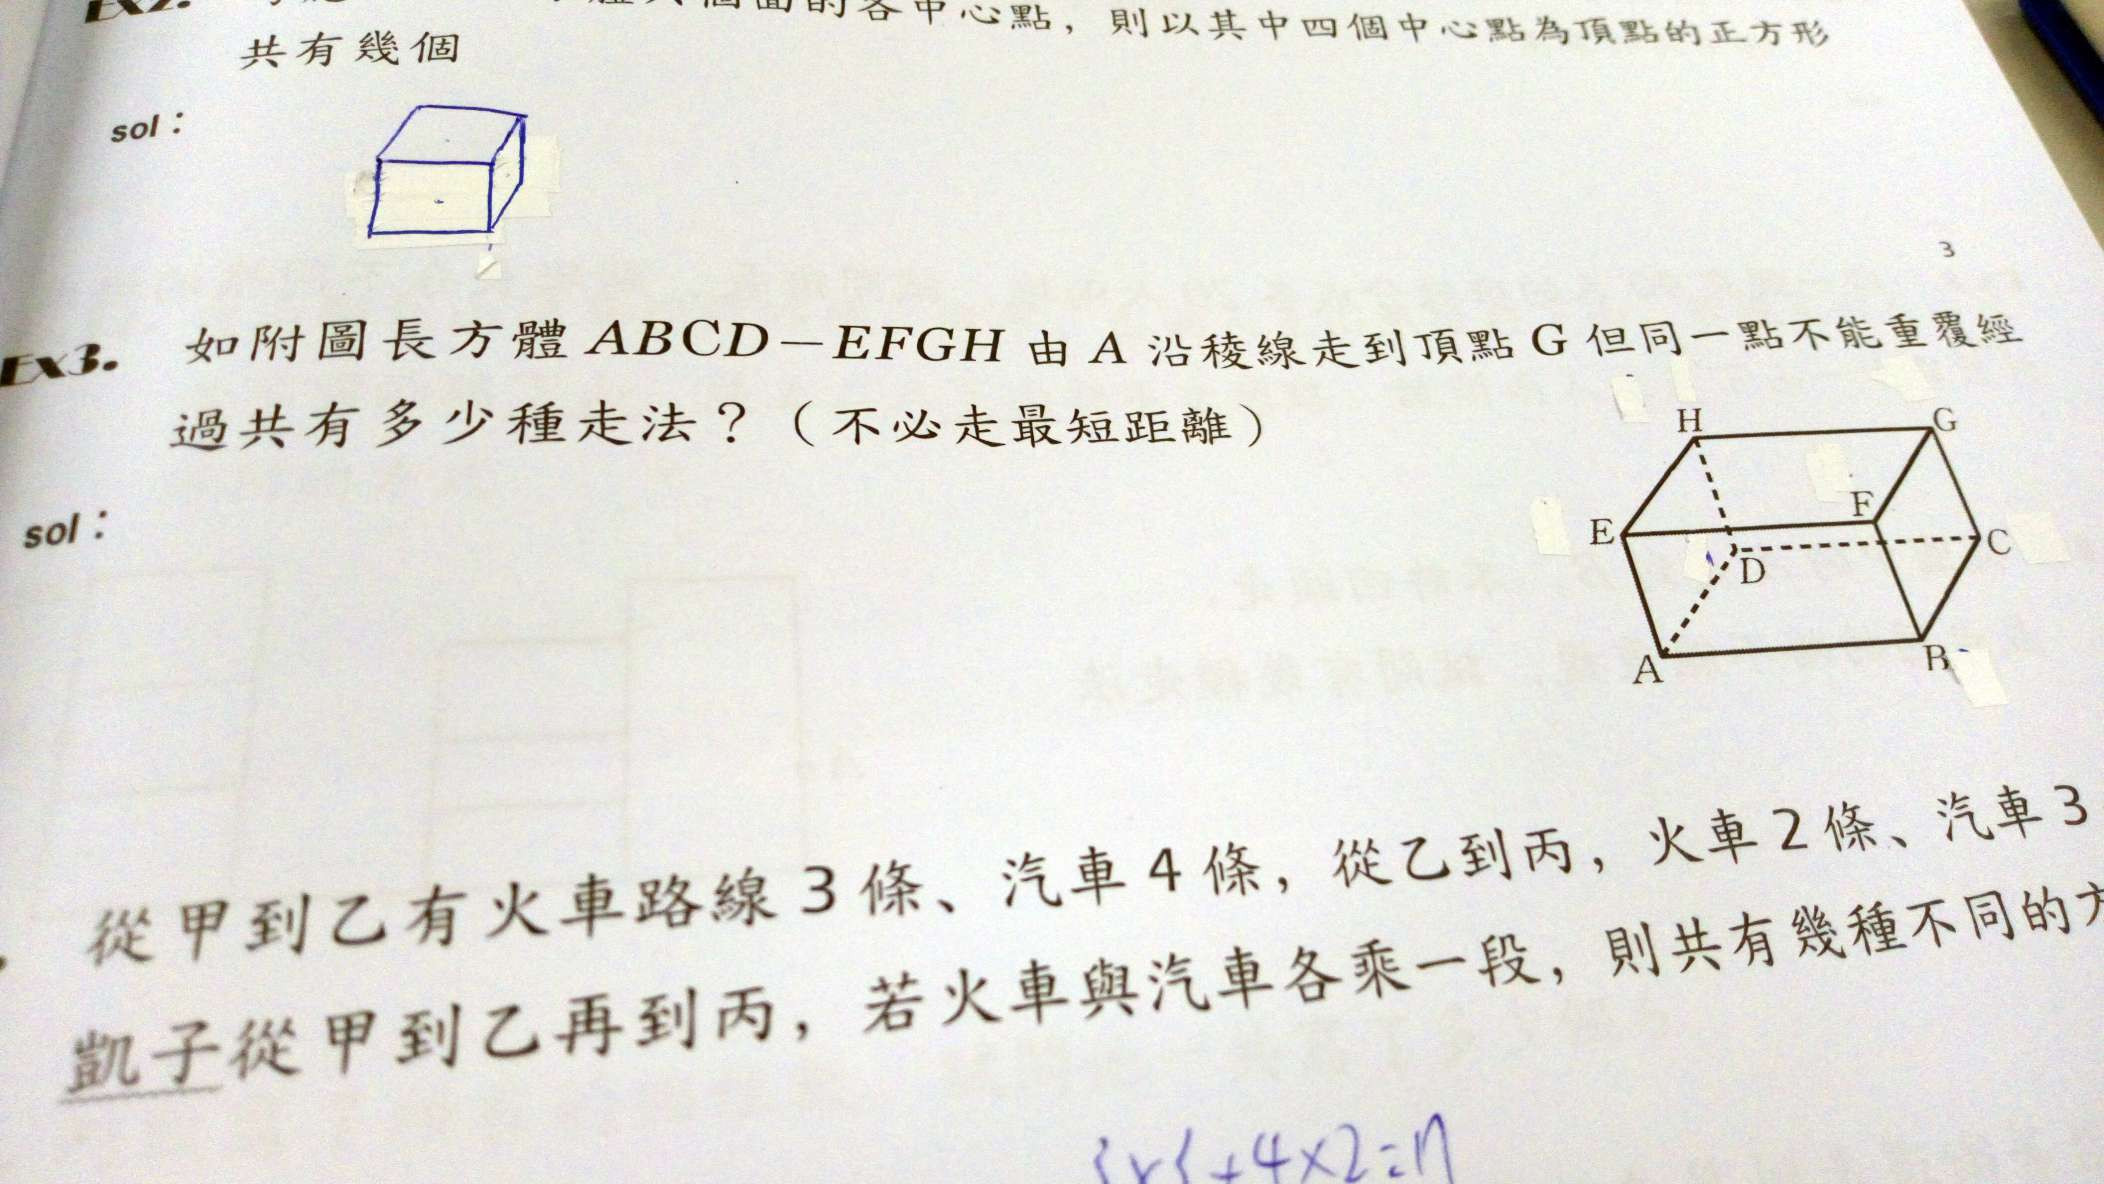 Ex2.
個面的各中心點，則以其中四個中心點為頂點的正方形
共有幾個
sol：
3
Ex3. 如附圖長方體 ABCD－EFGH 由 A 沿稜線走到頂點 G 但同一點不能重覆經
過共有多少種走法？（不必走最短距離）
sol：
H G
E F
D C
A B
從甲到乙有火車路線 3 條、汽車 4 條，從乙到丙，火車 2 條、汽車 3
凱子從甲到乙再到丙，若火車與汽車各乘一段，則共有幾種不同的方
3×3+4×2=17